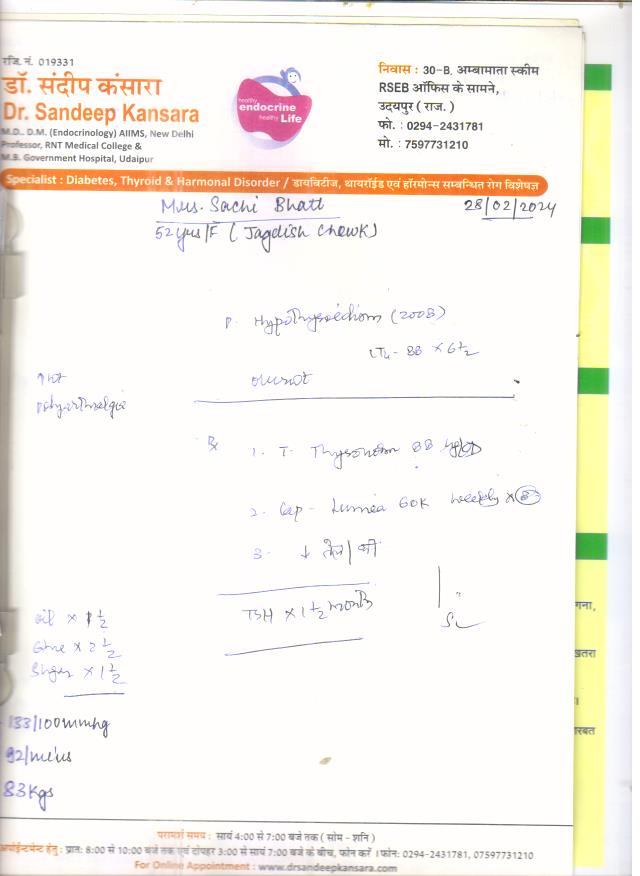 रजि. नं. 019331
डॉ. संदीप कंसारा
Dr. Sandeep Kansara
M.D., D.M. (Endocrinology) AIIMS, New Delhi
Professor, RNT Medical College &
M.B. Government Hospital, Udaipur
healthy
endocrine
healthy Life
निवास : 30-B, अम्बामाता स्कीम
RSEB ऑफिस के सामने,
उदयपुर ( राज. )
फो. : 0294-2431781
मो. : 7597731210
Specialist : Diabetes, Thyroid & Harmonal Disorder / डायबिटीज, थायरॉईड एवं हॉरमोन्स सम्बन्धित रोग विशेषज्ञ
Mrs. Sachi Bhatt
28/02/2024
52 yrs/F ( Jagdish Chowk)
(2008)
LT4 - 88 × 6 1/2
polyarthralgia
Rx
1. T. 88
2. Cap - Lumea 60K weekly × 8
3. ↓ तेल / घी
TSH × 1 1/2 months
oil × 1 1/2
Ghee × 2 1/2
Sugar × 1 1/2
133/100 mmhg
92/mins
83 Kgs
गना,
खतरा
रबत
परामर्श समय : सायं 4:00 से 7:00 बजे तक ( सोम - शनि )
अपोईन्टमेन्ट हेतु : प्रातः 8:00 से 10:00 बजे तक एवं दोपहर 3:00 से सायं 7:00 बजे के बीच, फोन करें । फोन: 0294-2431781, 07597731210
For Online Appointment : www.drsandeepkansara.com